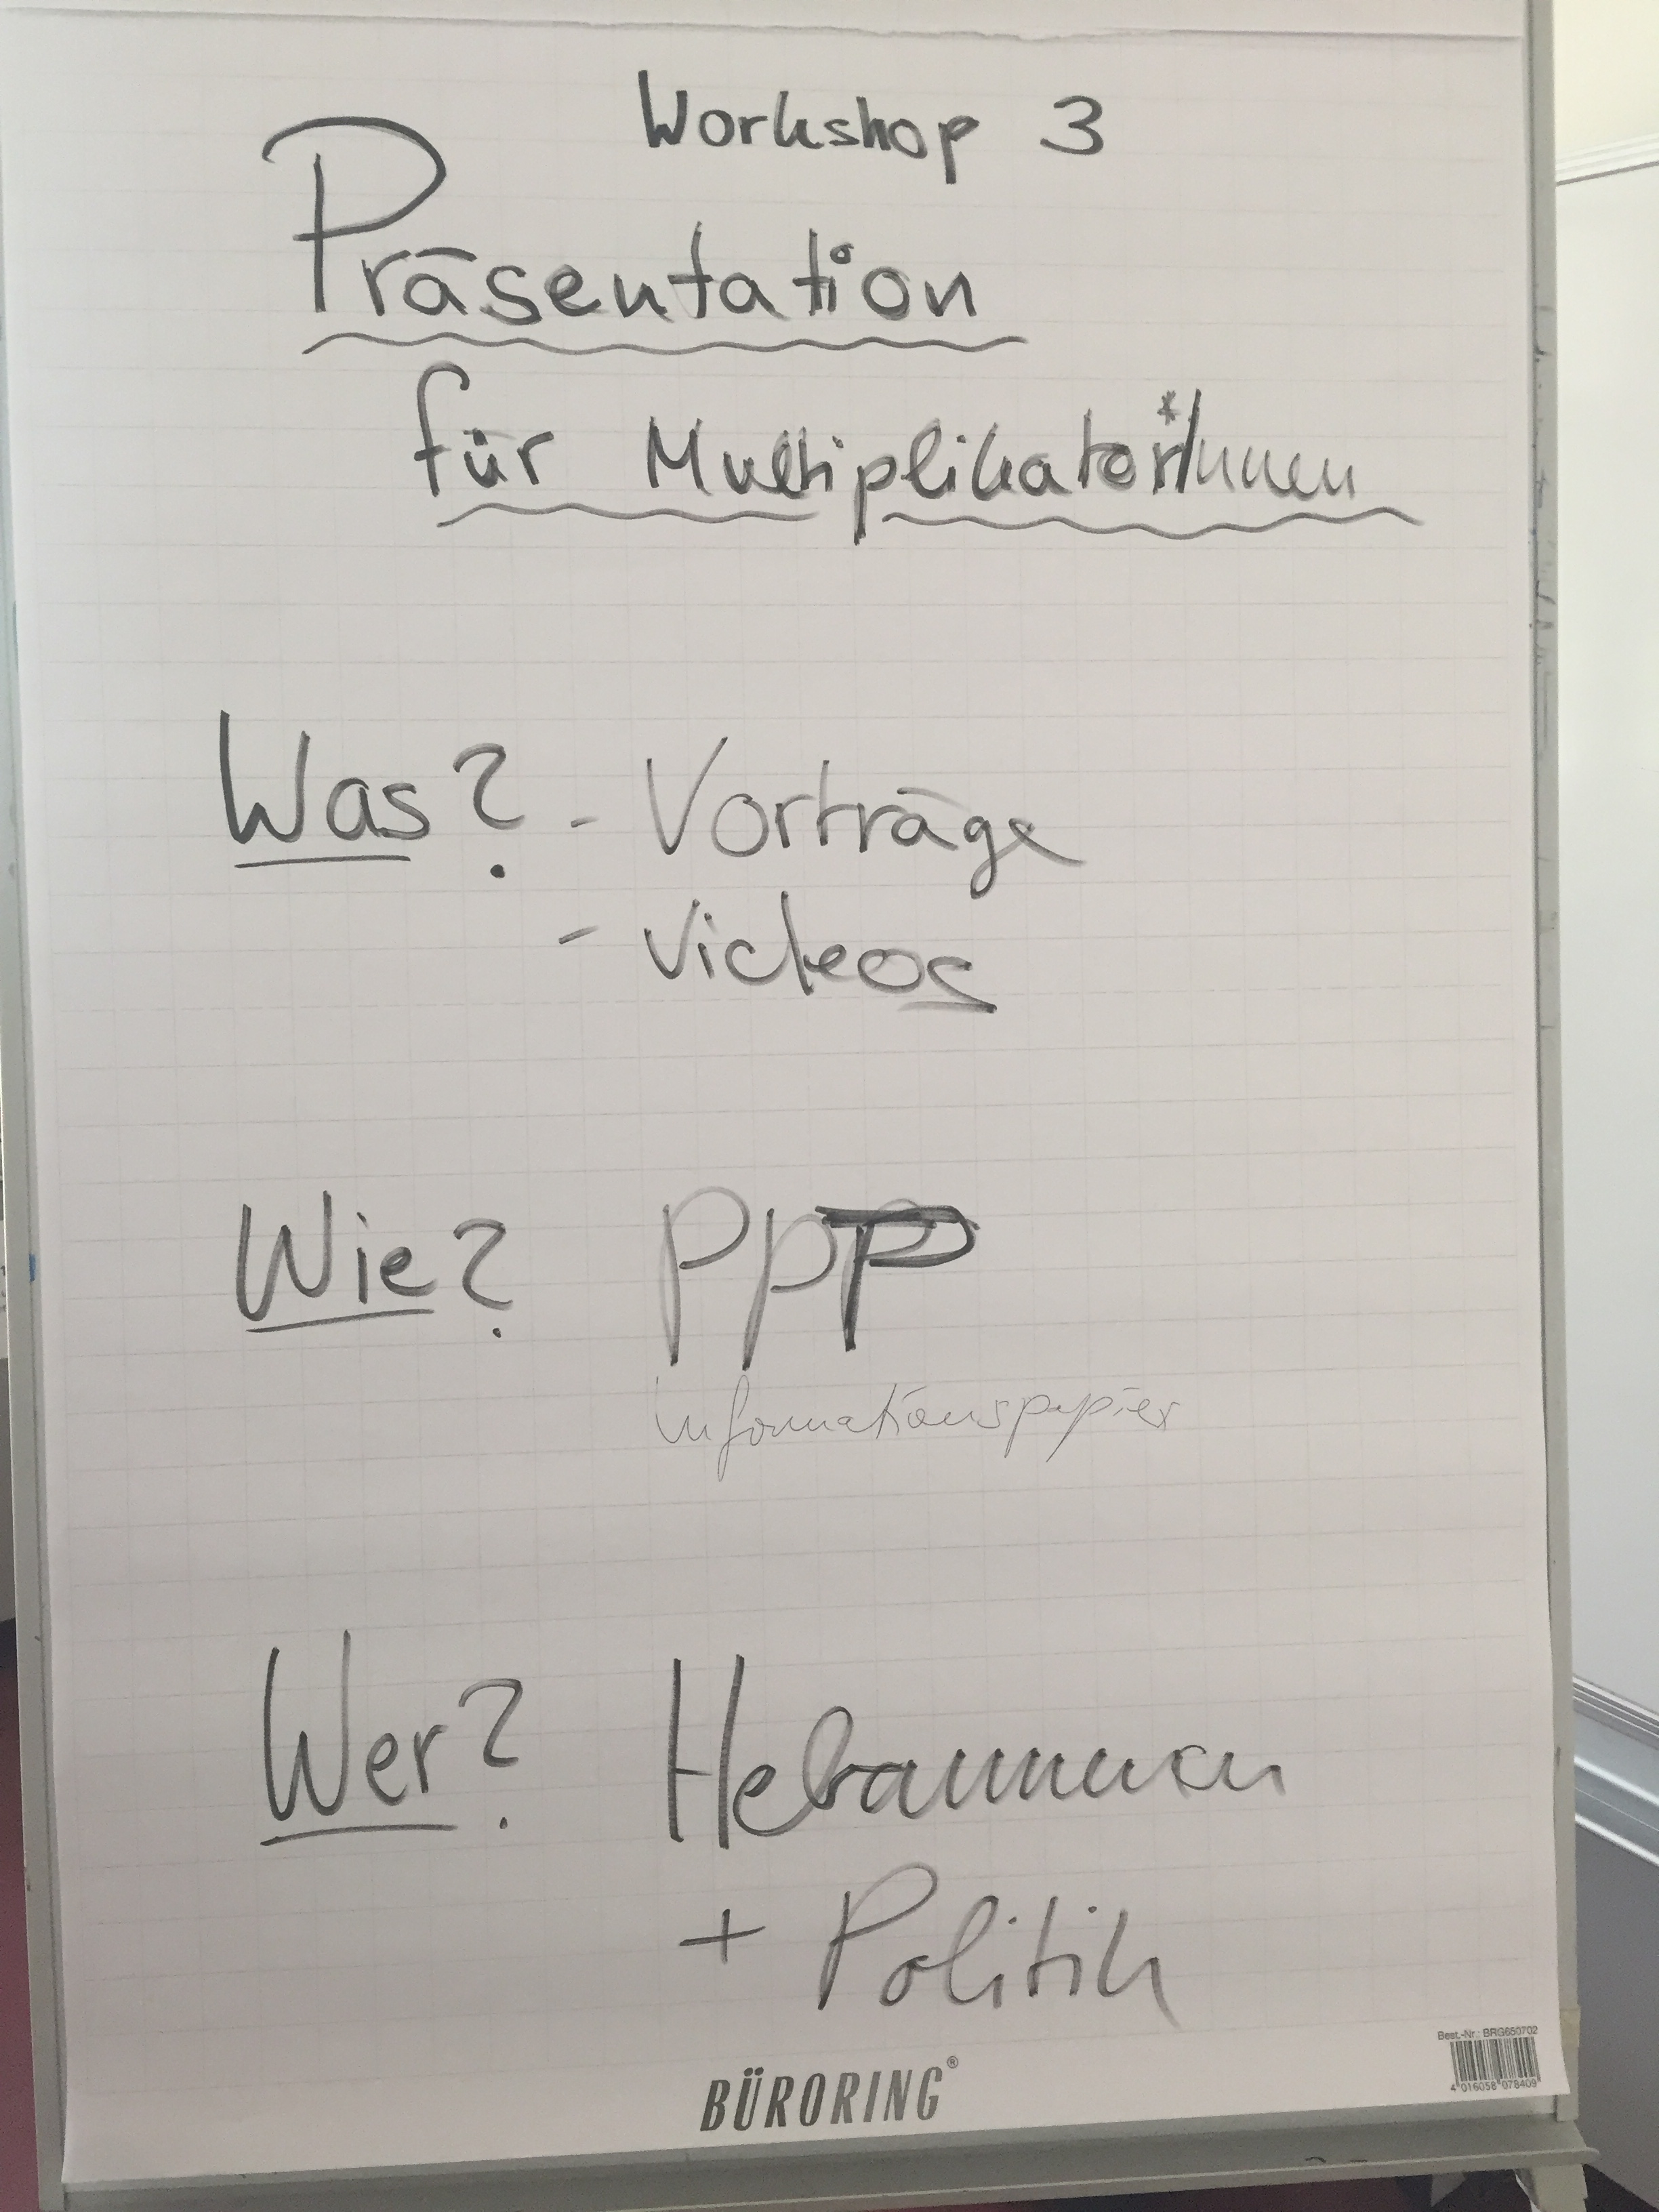 Workshop 3
Präsentation
für Multiplikator*/Innen
Was? - Vorträge
- Videos
Wie? PPP
Informationspapier
Wer? Hebammen
+ Politik
Best.-Nr.: BRG650702
4 016058 078409
BÜRORING®